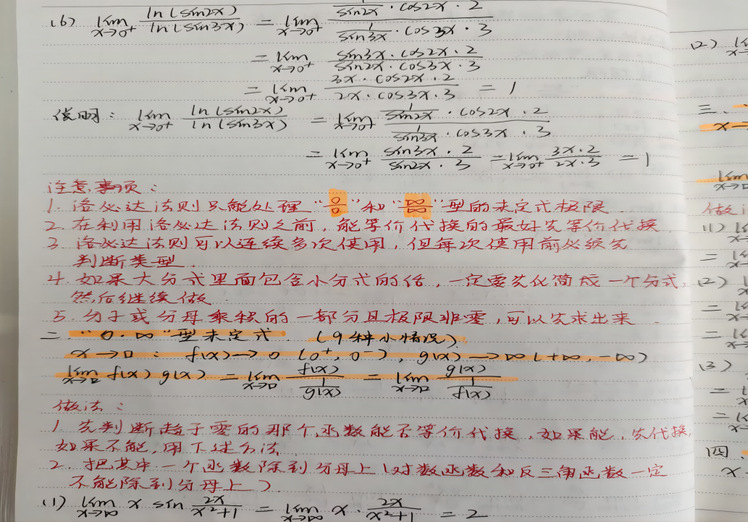 (6) lim x→0⁺ ln(sin2x)/ln(sin3x) = lim x→0⁺ (1/sin2x · cos2x · 2)/(1/sin3x · cos3x · 3)
= lim x→0⁺ (sin3x · cos2x · 2)/(sin2x · cos3x · 3)
= lim x→0⁺ (3x · cos2x · 2)/(2x · cos3x · 3) = 1
lim x→0⁺ ln(sin2x)/ln(sin3x) = lim x→0⁺ (1/sin2x · cos2x · 2)/(1/sin3x · cos3x · 3)
= lim x→0⁺ (sin3x · 2)/(sin2x · 3) = lim x→0⁺ (3x · 2)/(2x · 3) = 1
注意事项:
1. 洛必达法则只能处理“0/0”和“∞/∞”型的未定式极限.
2. 在利用洛必达法则之前,能等价代换的最好先等价代换.
3. 洛必达法则可以连续多次使用,但每次使用前必须先
判断类型.
4. 如果大分式里面包含小分式的话,一定要先化简成一个分式,
然后继续做.
5. 分子或分母乘积的一部分且极限非零,可以先求出来.
二. “0·∞”型未定式. (9种小情况)
x→□: f(x)→0 (0⁺, 0⁻), g(x)→∞ (+∞, -∞)
lim x→□ f(x) g(x) = lim x→□ f(x)/(1/g(x)) = lim x→□ g(x)/(1/f(x))
做法:
1. 先判断趋于零的那个函数能否等价代换,如果能,先代换,
如果不能,用下述方法.
2. 把其中一个函数除到分母上(对数函数和反三角函数一定
不能除到分母上)
(1) lim x→∞ x sin 2x/(x²+1) = lim x→∞ x · 2x/(x²+1) = 2
(2)
三.
x→
lim
(1)
(2)
=
=
(3)
=
=
四.
x